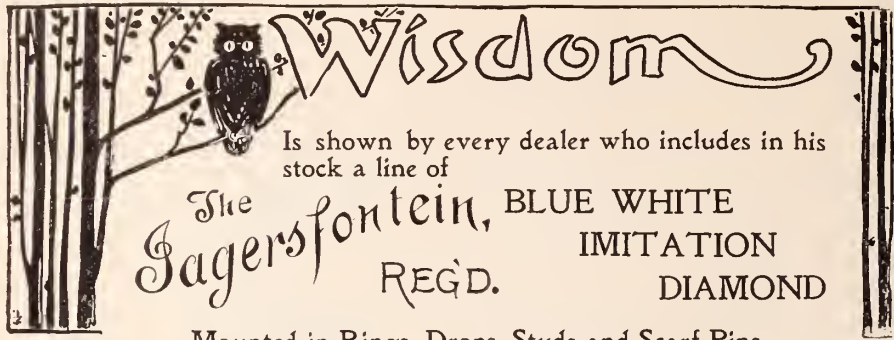 Wisdom
Is shown by every dealer who includes in his
stock a line of
The
Jagersfontein, BLUE WHITE
REG'D. IMITATION
DIAMOND
Mounted in Rings, Drops, Studs and Scarf Pins